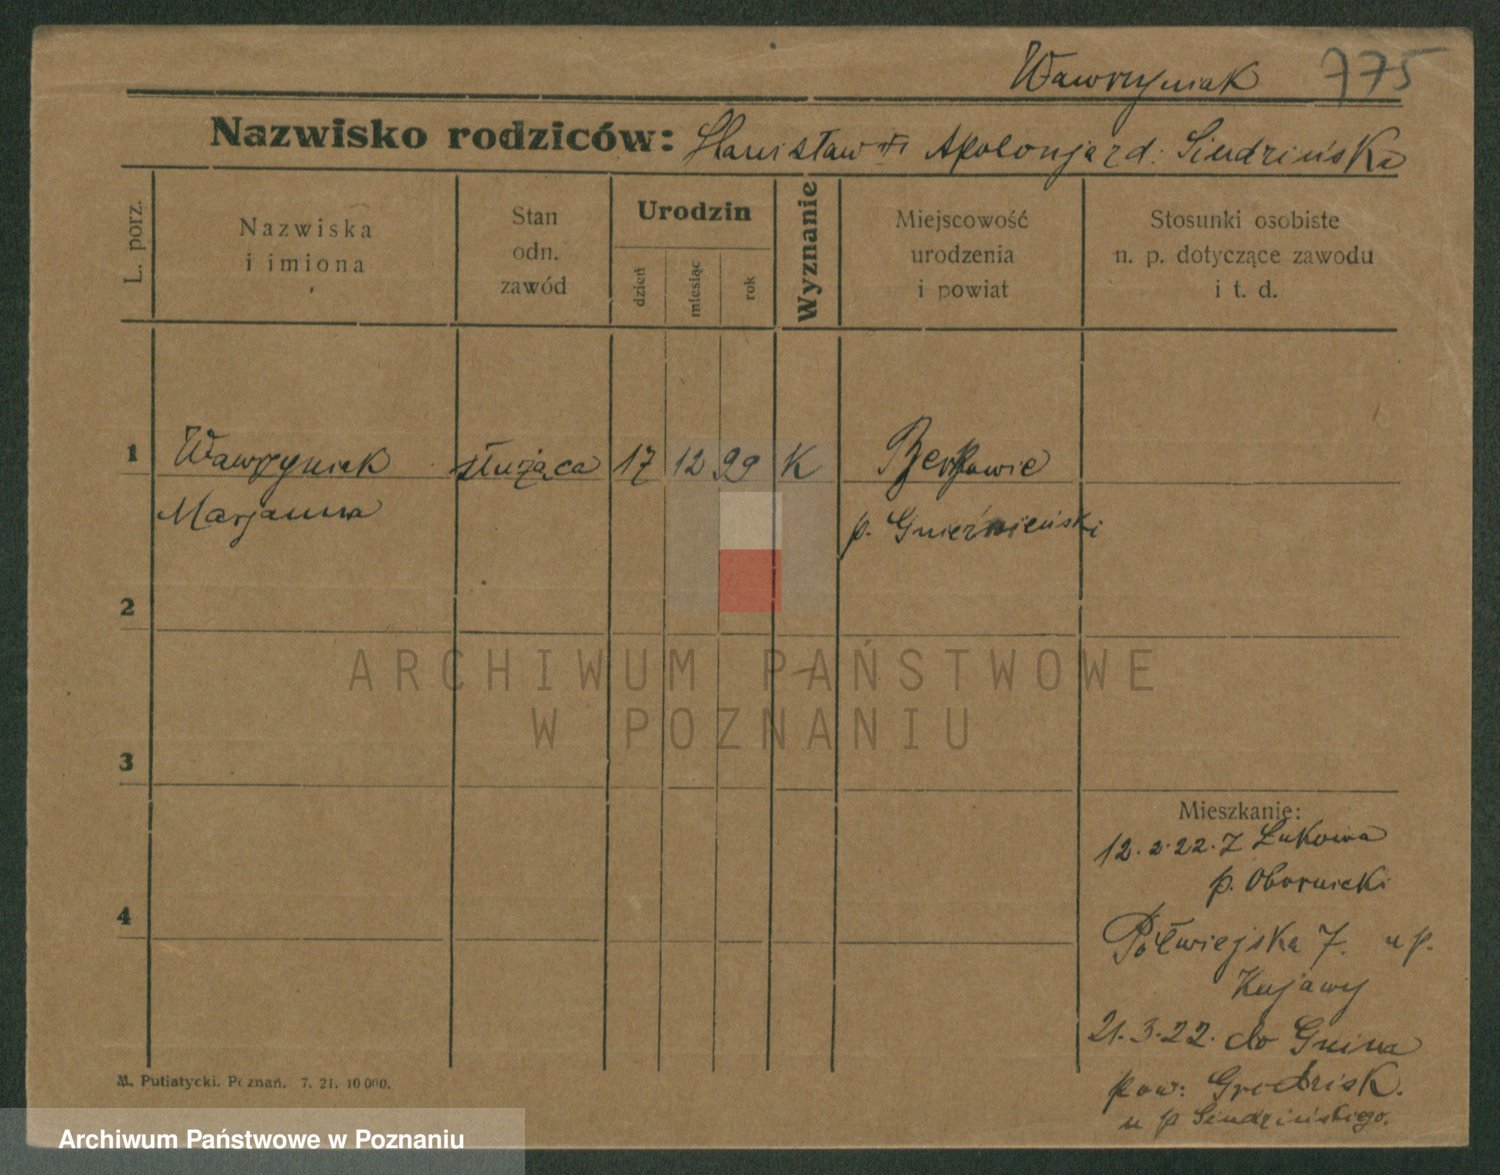 Wawrzyniak 775
Nazwisko rodziców: Stanisław i Apolonja z d. Siudzińska
L. porz.
Nazwiska
i imiona
Stan
odn.
zawód
Urodzin
dzień
miesiąc
rok
Wyznanie
Miejscowość
urodzenia
i powiat
Stosunki osobiste
n. p. dotyczące zawodu
i t. d.
1 Wawrzyniak służąca 17 12 99 K
Marjanna p. Gnieźnieński
2
3
4
Mieszkanie:
12.2.22. Z Łukowa
p. Obornicki
Półwiejska 7. u p.
Kujawy
21.3.22. do Gnina
pow: Grodzisk.
u p Siudzińskiego.
M. Putiatycki. Poznań. 7. 21. 10000.
ARCHIWUM PAŃSTWOWE
W POZNANIU
Archiwum Państwowe w Poznaniu